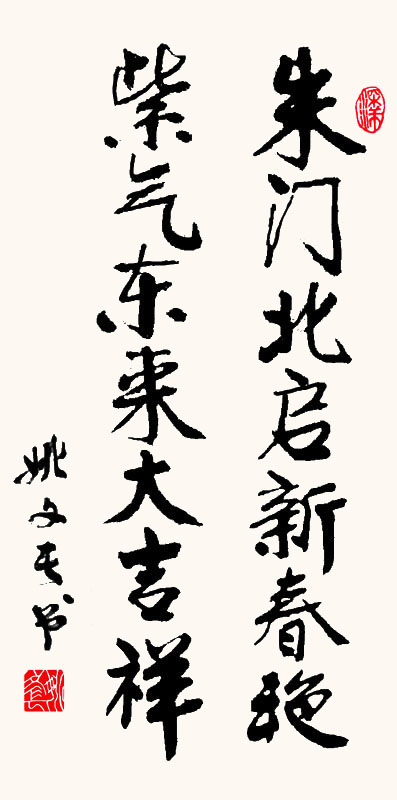 朱门北启新春艳
紫气东来大吉祥
姚文书